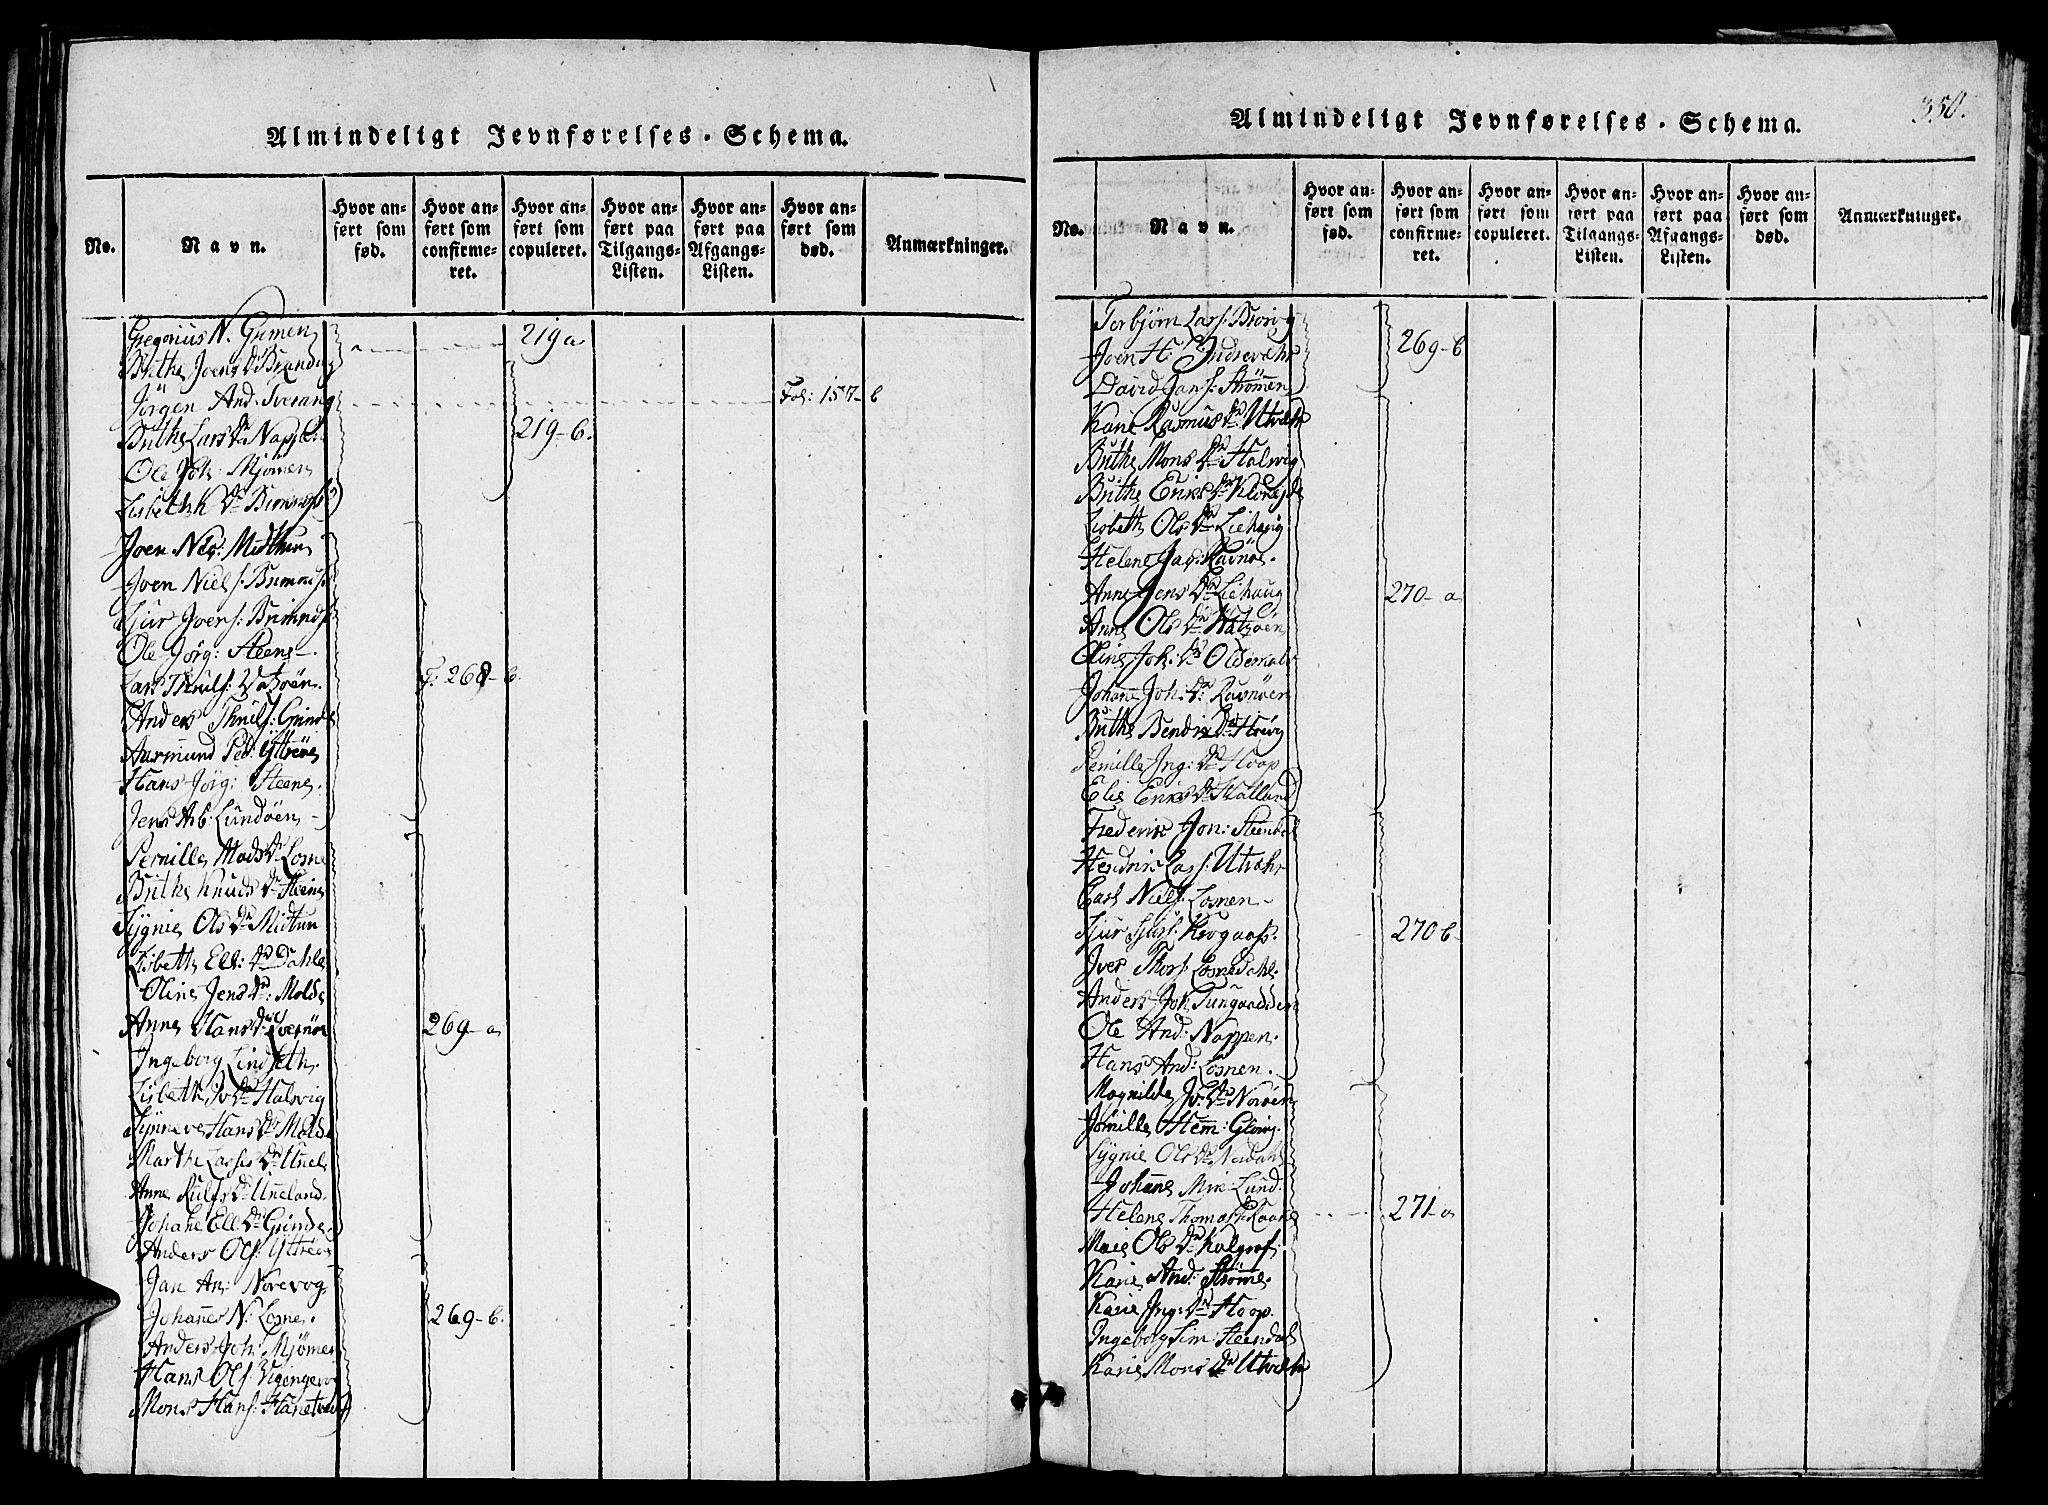 Almindeligt Jevnførelses-Schema.
No.
Navn.
Hvor anført som fød.
Hvor anført som confirmeret.
Hvor anført som copuleret.
Hvor anført paa Tilgangs-Listen.
Hvor anført paa Afgangs-Listen.
Hvor anført som død.
Anmærkninger.
Gregorius N. Grimen
219 a
Brithe Joens Dr
Jörgen And. Tverang
Fol: 157-b
Brithe Lars Dr Nappen
219-b.
Ole Joh: Mjömen
Lisbeth K Dr
Joen Nils: Midthun
Joen Niels:
Sjur Joens:
Ole Jörg: Steene
Lars Thruls: Vatzöen.
F: 268-b.
Anders Thruls: Grinde
Aasmund Ped: Yttröe
Hans Jörg: Steene.
Jens Asb: Lundöen
Pernille Mads Dr Losne
Brithe Knuds Dr Steene
Sygnie Ols Dr Midtun
Lisbeth Ell: Dr Dahle
Oline Jens Dr: Molde
Anne Hans Dr
269-a
Ingeborg Lindseth.
Lisbeth Iv: Dr Halsvig
Synneve Hans Dr Molde
Marthe Lasses Dr
Anne Rulfs Dr Uneland.
Johane Ell: Dr Grinde
Anders Ols: Yttröe
Jan An: Norevog
Johannes N. Losne.
269-b.
Anders Joh: Mjömen
Hans Ols:
Mons Hans:
Almindeligt Jevnførelses-Schema.
350.
No.
Navn.
Hvor anført som fød.
Hvor anført som confirmeret.
Hvor anført som copuleret.
Hvor anført paa Tilgangs-Listen.
Hvor anført paa Afgangs-Listen.
Hvor anført som død.
Anmærkninger.
Torbjörn Lars:
Joen H: Indrevæhr
269-b
David Jans: Strömmen
Karie Rasmus Dr Utvæhr
Brithe Mons Dr Halsvig
Brithe Eriks Dr
Lisbeth Ols Dr Liehaug
Helene Jac: Ravnöe.
Anne Jens Dr Liehaug
270-a
Anne Ols Dr Hatzöen
Oline Joh: Dr Oldernæs
Johane Joh: Dr Ravnöen
Brithe Bendix Dr
Pernille Ing: Dr Hoop
Elie Eriks Dr
Frederik Jon: Steendal
Hendrik Lass: Utvæhr
Carl Niels: Losnen
Sjur Sjurs: Krogaas.
270 b
Iver Thors: Losnedahl.
Anders Joh:
Ole And: Nappen.
Hans And: Losnen.
Magnilde Iv: Dr
Jornille Hem:
Sygnie Ols Dr
Johane Mik: Lund.
Helene Thomas
271-a
Marie Ols Dr Kolgrof.
Karie And: Strömme.
Karie Ing: Dr Hoop.
Ingeborg Sim: Steendal
Karie Mons Dr Utvæhr